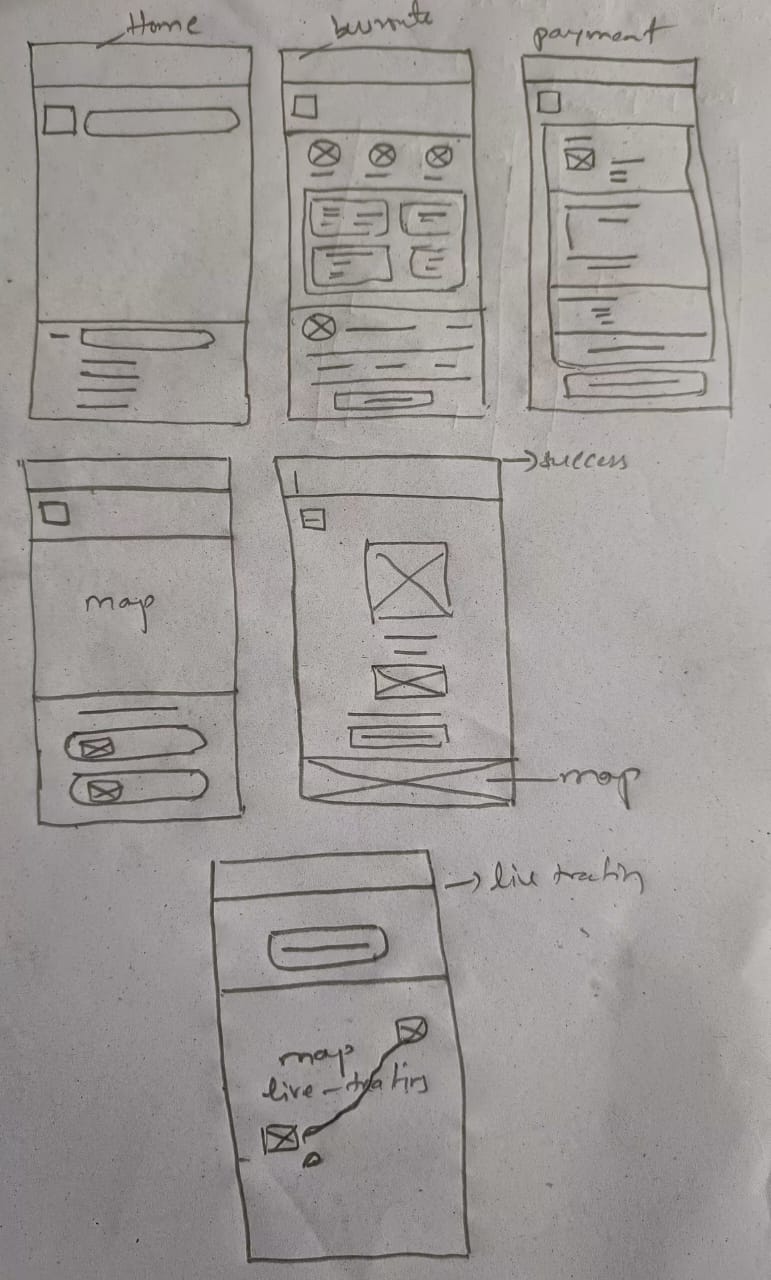 Home
busroute
payment
success
map
map
live tracking
map
live-tracking